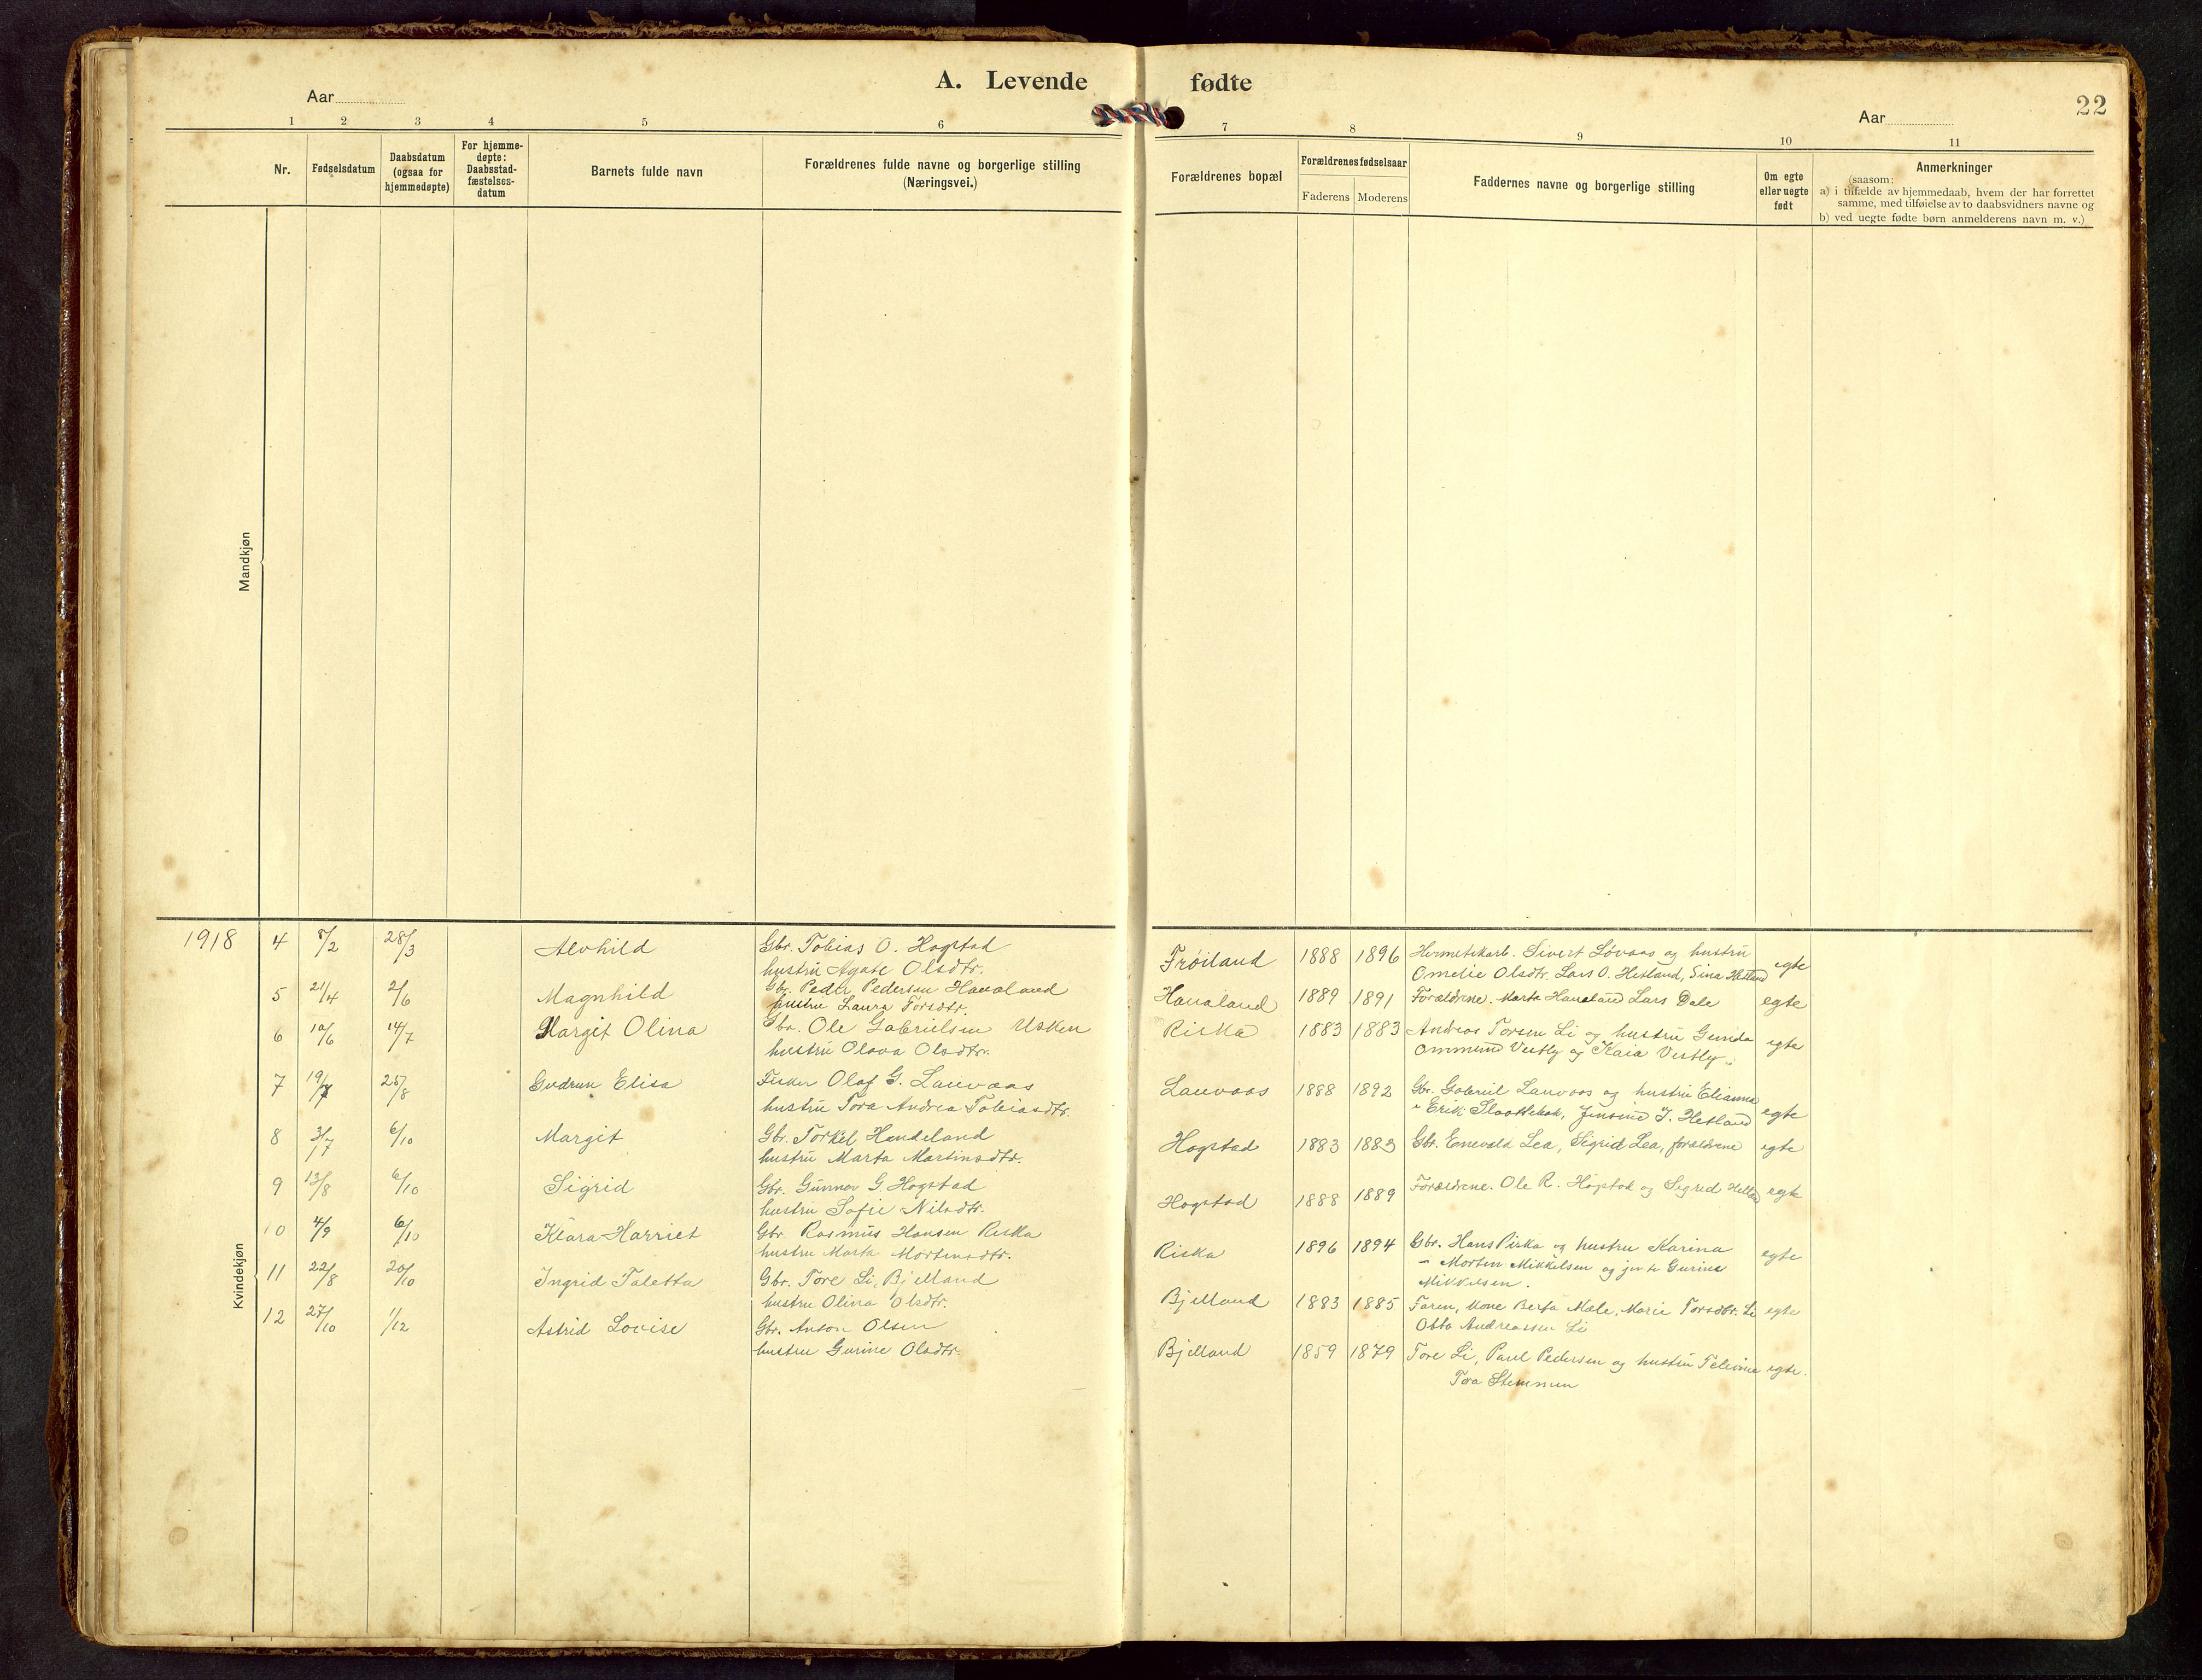 A. Levende fødte
22
Aar
Aar
1 2 3 4 5 6 7 8 9 10 11
Nr.
Fødselsdatum
Daabsdatum
(ogsaa for
hjemmedøpte)
For hjemme-
døpte:
Daabsstad-
fæstelses-
datum
Barnets fulde navn
Forældrenes fulde navne og borgerlige stilling
(Næringsvei.)
Forældrenes bopæl
Forældrenes fødselsaar
Faderens Moderens
Faddernes navne og borgerlige stilling
Om egte
eller uegte
født
Anmerkninger
(saasom:
a) i tilfælde av hjemmedaab, hvem der har forrettet
samme, med tilføielse av to daabsvidners navne og
b) ved uegte fødte børn anmelderens navn m. v.)
Mandkjøn
Kvindekjøn
1918 4 8/2 28/3 Alvhild Gbr. Tobias O. Hogstad Frøiland 1888 1896 Hermetikarb. Sivert Løvaas og hustru egte
hustru Agate Olsdtr. Omelie Olsdtr. Lars O. Hetland, Sina Hetland
5 21/4 2/6 Magnhild Gbr. Peder Pedersen Hanaland Hanaland 1889 1891 Forældrene. Marta Hanaland Lars Dale egte
hustru Laura Torsdtr.
6 10/6 14/7 Margit Olina Gbr. Ole Gabrielsen Usken Riska 1883 1883 Andreas Torsen Li og hustru Gunida egte
hustru Olava Olsdtr. Ommund Vestly og Kaia Vestly
7 19/7 25/8 Gudrun Elisa Fisker Olaf G. Lauvaas Lauvaas 1888 1892 Gbr. Gabriel Lauvaas og hustru Elianna egte
hustru Tora Andrea Tobiasdtr. " Erik Slaattebak, Jensine J. Hetland
8 3/7 6/10 Margit Gbr. Torkel Handeland Hogstad 1883 1883 Gbr. Enevald Lea, Sigrid Lea, forældrene egte
hustru Marta Martinsdtr.
9 13/8 6/10 Sigrid Gbr. Gunnar G. Hogstad Hogstad 1888 1889 Forældrene. Ole R. Hogstad og Sigrid egte
hustru Sofie Nilsdtr.
10 4/9 6/10 Klara Harriet Gbr. Rasmus Hansen Riska Riska 1896 1894 Gbr. Hans Riska og hustru Karina egte
hustru Marta Mortensdtr. " Morten Mikkelsen og Gurine
Mikkelsen.
11 22/8 20/10 Ingrid Taletta Gbr. Tore Li, Bjelland Bjelland 1883 1885 Faren, Kone Berta Mæle, Marie Torsdtr. Li egte
hustru Olina Olsdtr. Otto Andreassen Li
12 27/10 1/12 Astrid Lovise Gbr. Anton Olsen Bjelland 1859 1879 Tore Li, Paul Pedersen og hustru egte.
hustru Gurine Olsdtr. Tora Stemmen